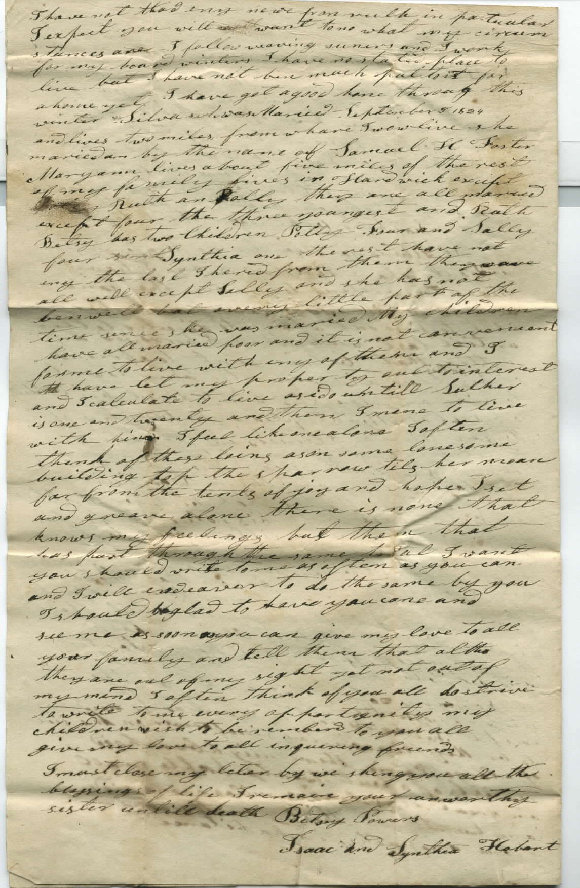 I have not thad eny news from rulb in particular
I expect you will want to no what my circum
stances are I follow waving sumers and I work
for my board winters I have no stated place to
live but I have not ben much put out for
a home yet I have got a good home throug this
winter Silva was Maried September 5 1824
and lives two miles from whare I now live she
maried a man by the name of Samuel H Foster
Maryann lives about five miles of the rest
of my family lives in Hardwick except
Ruth an Polly they are all maried
except four the three youngest and Ruth
Betsy has two Children Polly Four and Sally
four Synthia one the rest have not
eny the last I herd from them they ware
all well except Sally and she has not
ben well but avery little part of the
time since she was maried My children
have all maried poor and it is not convenient
for me to live with eny of them and I
have let my property out to interest
and I calculate to live as I do untill Luther
is one and twenty and then I mene to live
with him I feel like one alone I often
think of these loins as on some lonesome
building top the sparrow tels her moan
far from the tents of joy and hope I set
and greave alone there is none that
knows my feelings but them that
has past through the same trial I want
you should write to me as often as you can
and I will endeaver to do the same by you
I should be glad to have you come and
see me as soon as you can give my love to all
your family and tell them that altho
they are out of my sight yet not out of
my mind I often think of you all do strive
to write to me every opportunity my
children wish to be rememberd to you all
give my love to all inquiering friends
I must close my leter by wishing you all the
blessings of life I remain your unworthy
sister untill death Betsy Powers
Isaac and Synthia Hobart